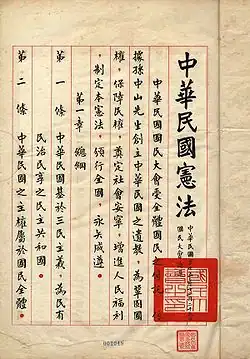 中華民國憲法
中華民國
國民大會
中華民國國民大會受全體國民之付託，依
據孫中山先生創立中華民國之遺教，為鞏固國
權，保障民權，奠定社會安寧，增進人民福利
，制定本憲法，頒行全國，永矢咸遵。
第一章 總綱
第一條 中華民國基於三民主義，為民有
民治民享之民主共和國。
第二條 中華民國之主權屬於國民全體。